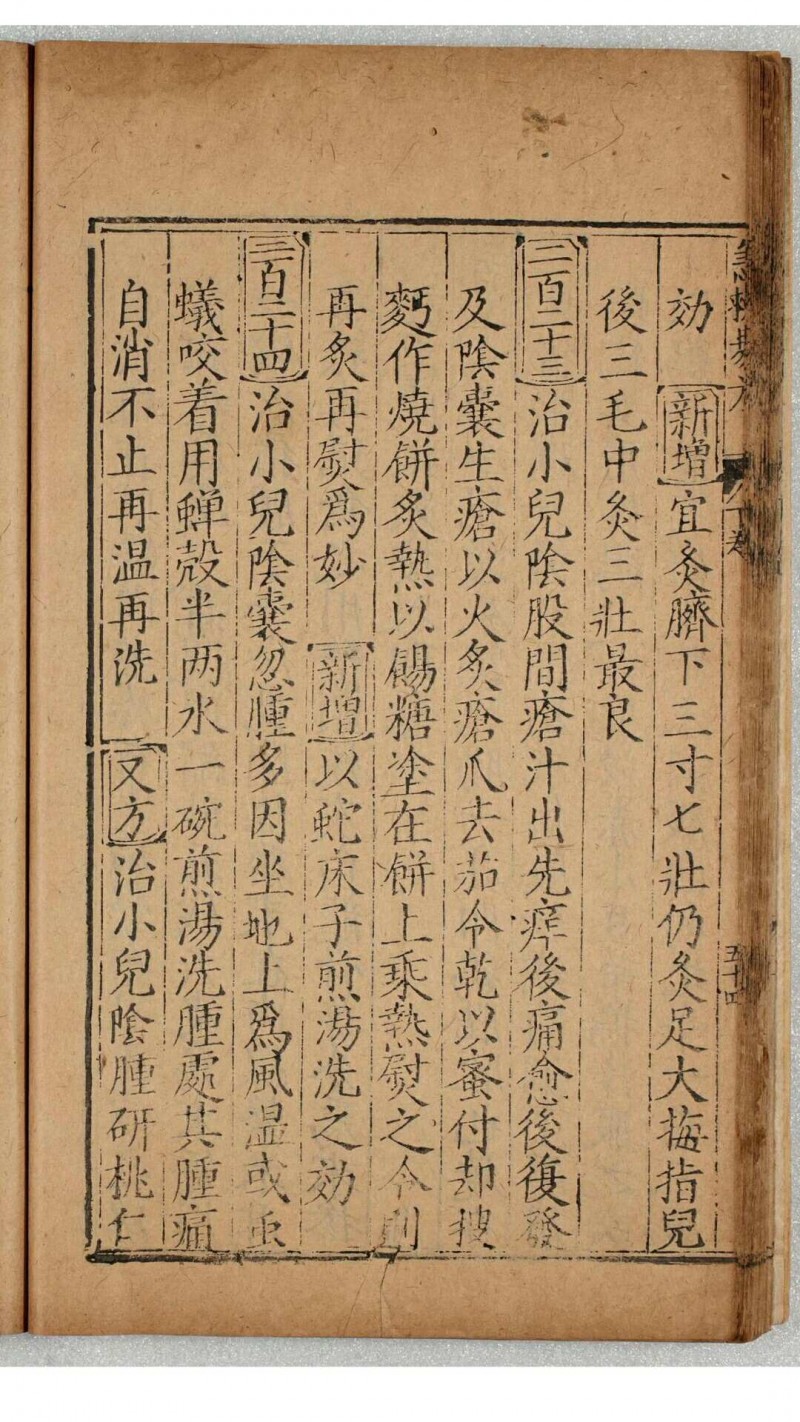 効 新增 宜灸臍下三寸七壯仍灸足大拇指兒
後三毛中灸三壯最良
二百二十三 治小兒陰股間瘡汁出先痒後痛愈後復發
及陰囊生瘡以火炙瘡爪去茄令乾以蜜付却搜
麫作燒餅炙熱以餳糖塗在餅上乘熱熨之令
再炙再熨爲妙 新增 以蛇床子煎湯洗之効
二百二十四 治小兒陰囊忽腫多因坐地上爲風温或䖝
蟻咬着用蟬殼半两水一碗煎湯洗腫處其腫痛
自消不止再温再洗 又方 治小兒陰腫研桃仁